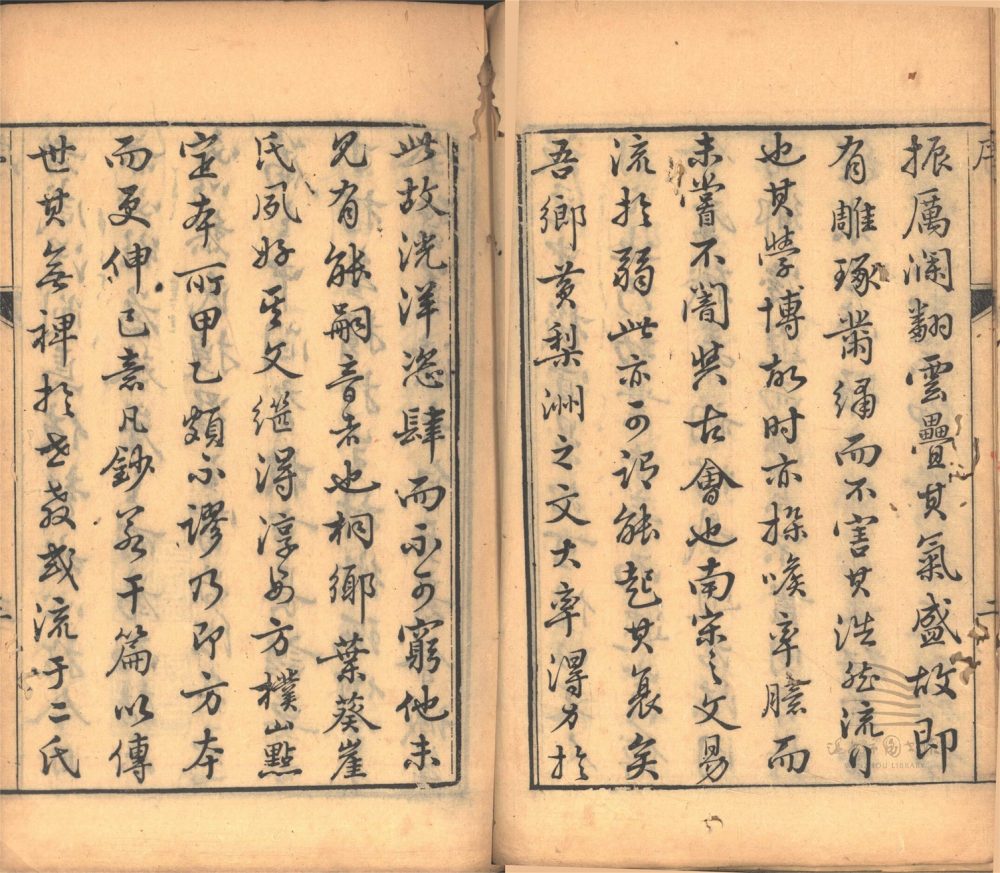 序
振厲瀾翻雲疊其氣盛故即
有雕琢黼繡而不害其浩然流行
也其學博故时亦探喉率臆而
未嘗不闇與古會也南宋之文易
流於弱此亦可謂能起其衰矣
吾鄉黃梨洲之文大率得力於
二
此故洸洋恣肆而不可窮他未
見有能嗣音者也桐鄉葉葵崖
氏夙好其文繼得淳安方樸山點
定本所甲乙頗不謬乃即方本
而更伸己意凡鈔若干篇以傳
世其無裨於世教或流于二氏